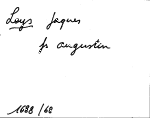 Loys Jaques
fr augustin
1688/68